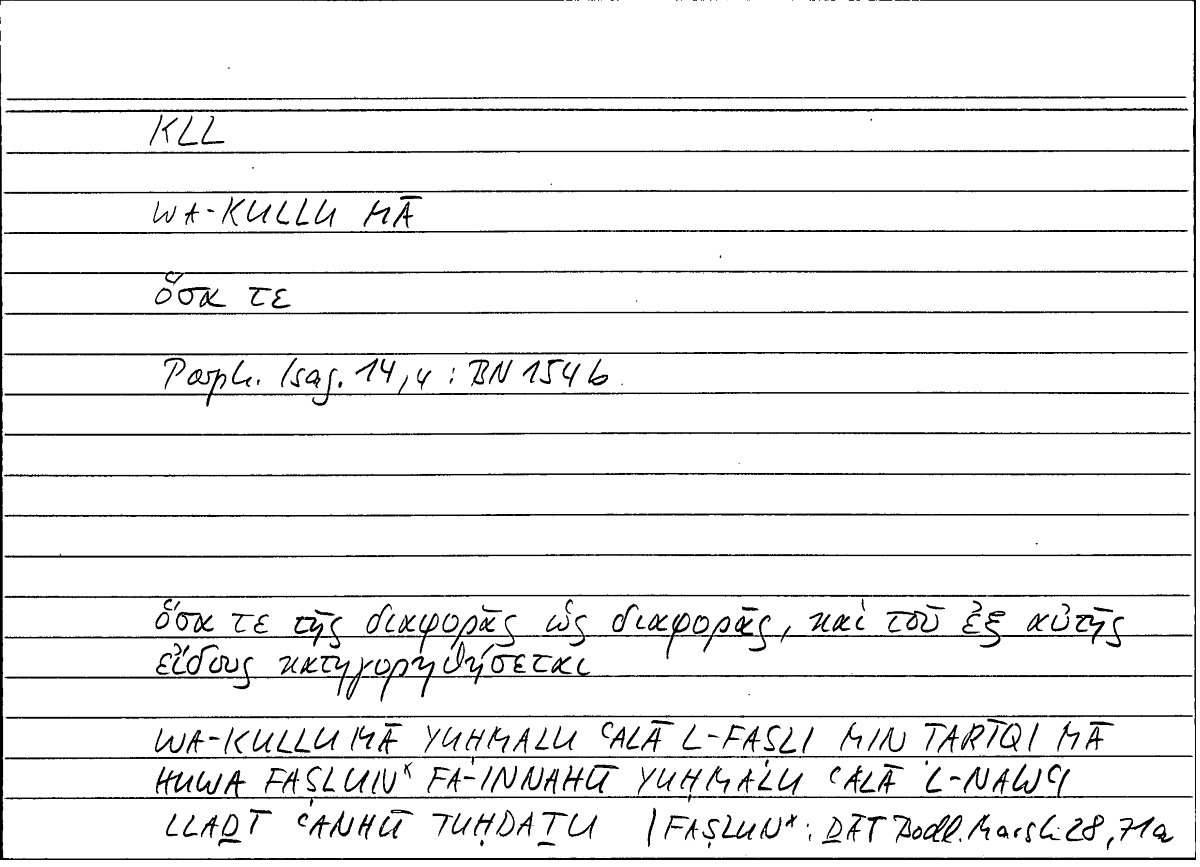 KLL
WA-KULLU MĀ
ὅσα τε
Porph. Isag. 14,4 : BN 154b
ὅσα τε τῆς διαφορᾶς ὡς διαφορᾶς, καὶ τοῦ ἐξ αὐτῆς
εἴδους κατηγορηθήσεται
WA-KULLU MĀ YUḤMALU ʿALĀ L-FAṢLI MIN ṬARĪQI MĀ
HUWA FAṢLUN* FA-INNAHŪ YUḤMALU ʿALĀ L-NAWʿI
LLAḎĪ ʿANHŪ TUḤDAṮU | FAṢLUN* : ḎĀT Bodl. Marsh. 28, 71a